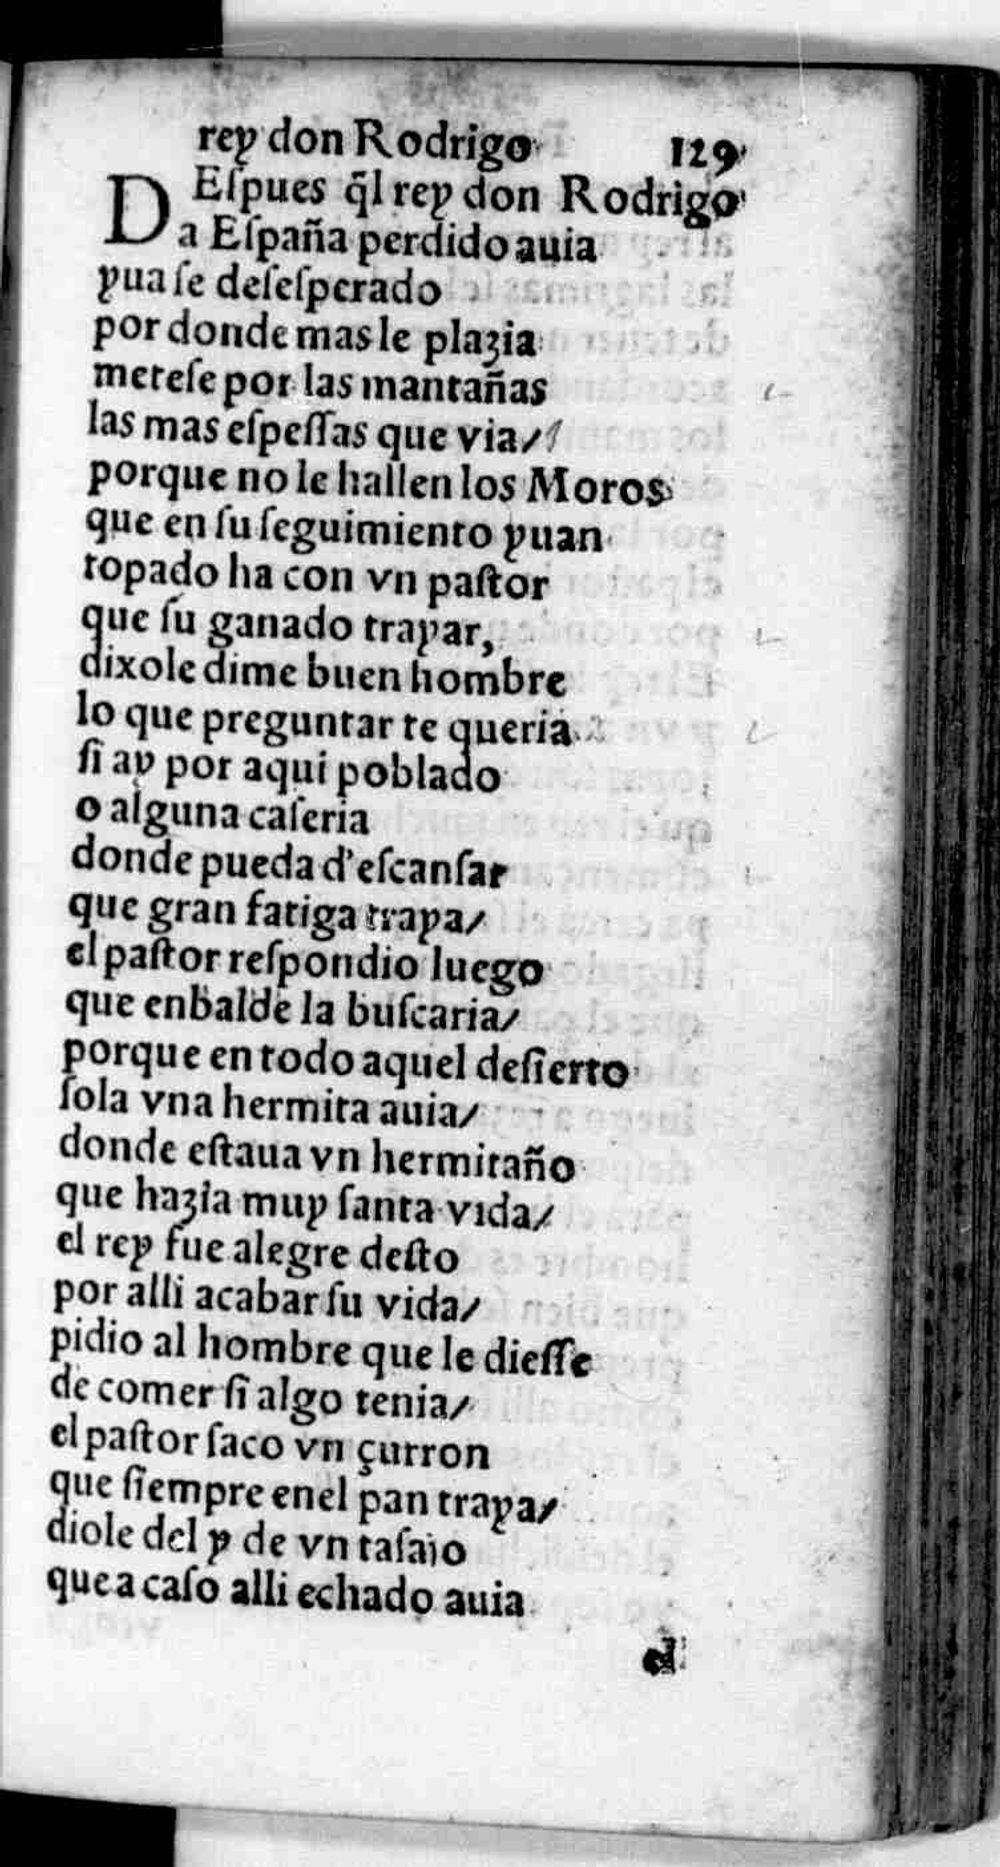 rey don Rodrigo 129
DEſpues q̃l rey don Rodrigo
a Eſpaña perdido auia
yua ſe deſeſperado
por donde mas le plazia
meteſe por las mantañas
las mas eſpeſſas que via/
porque no le hallen los Moros
que en ſu ſeguimiento yuan
topado ha con vn paſtor
que ſu ganado trayar,
dixole dime buen hombre
lo que preguntar te queria
ſi ay por aqui poblado
o alguna caſeria
donde pueda d'eſcanſar
que gran fatiga traya/
el paſtor reſpondio luego
que enbalde la buſcaria/
porque en todo aquel deſierto
ſola vna hermita auia/
donde eſtaua vn hermitaño
que hazia muy ſanta vida/
el rey fue alegre deſto
por alli acabar ſu vida/
pidio al hombre que le dieſſe
de comer ſi algo tenia/
el paſtor ſaco vn çurron
que ſiempre enel pan traya/
diole del y de vn taſaio
que a caſo alli echado auia
el